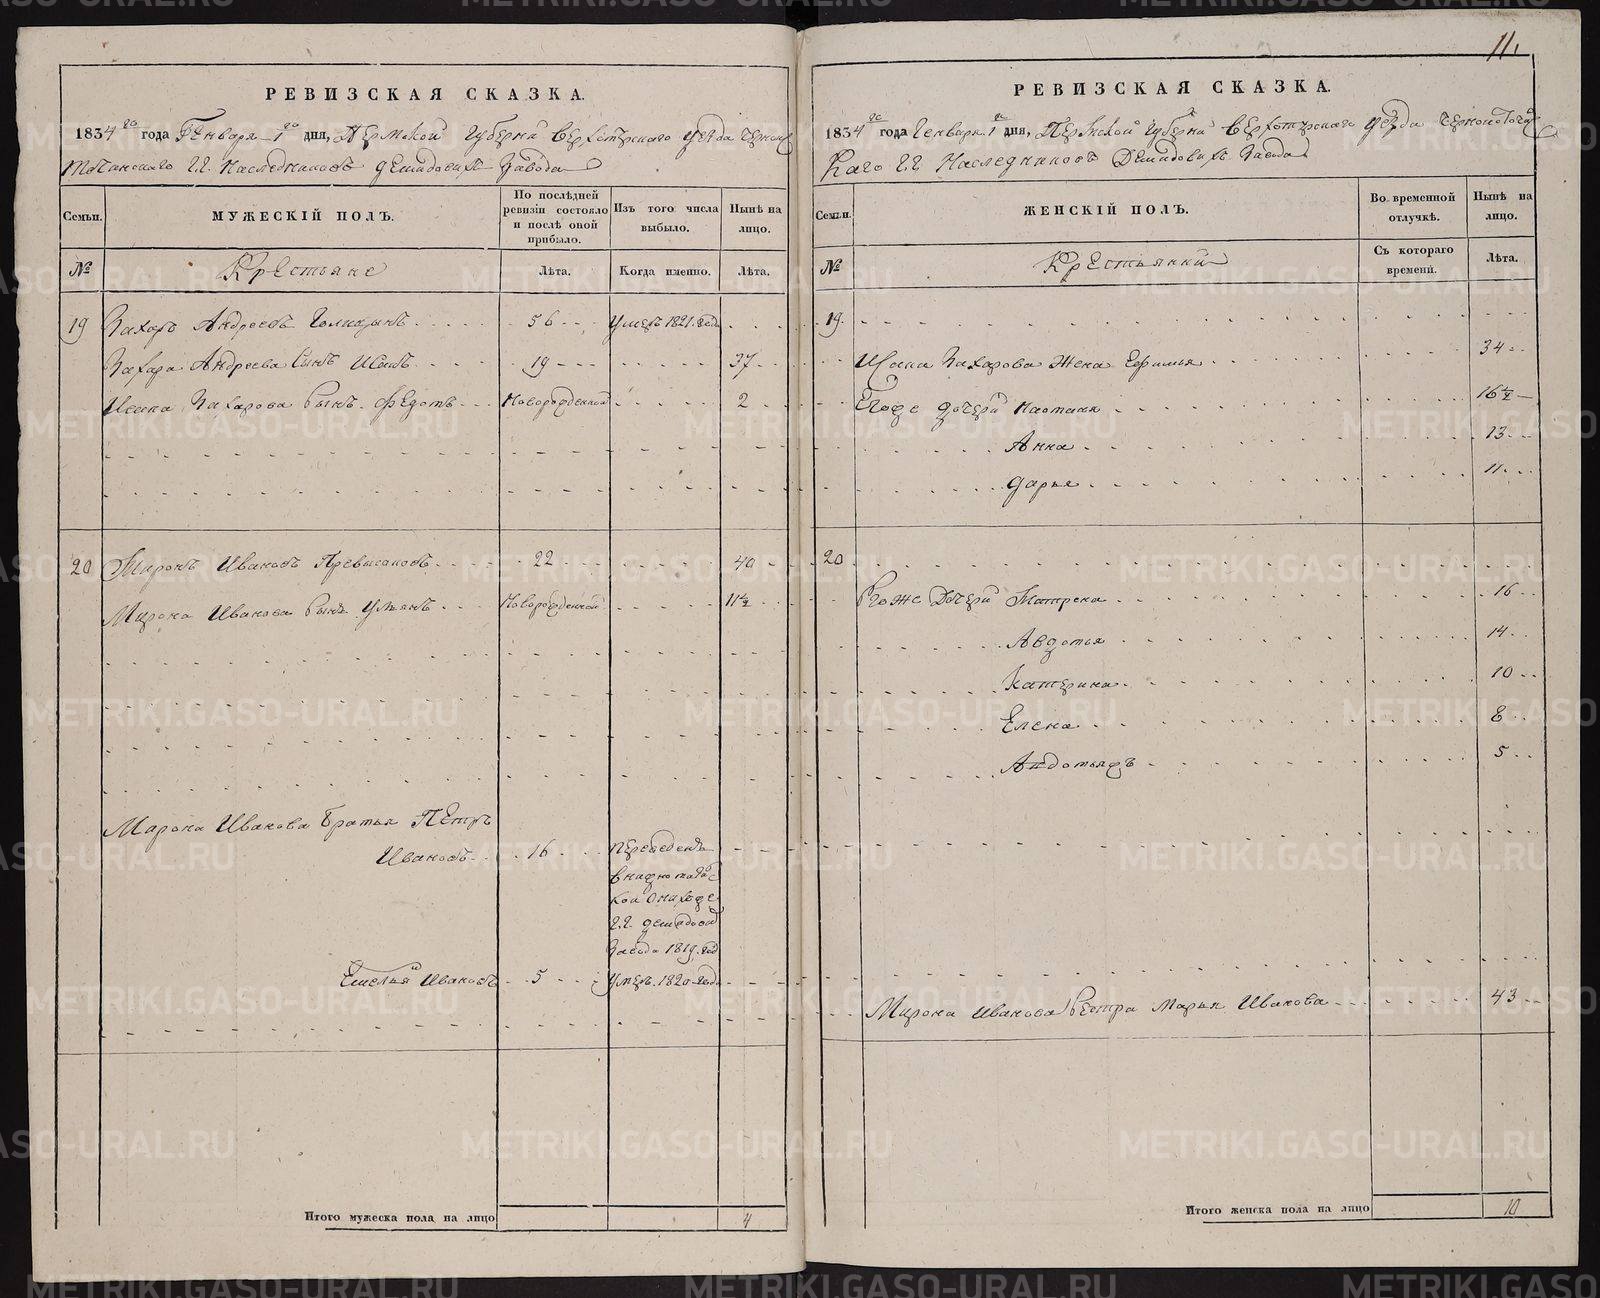 11.
РЕВИЗСКАЯ СКАЗКА.
1834го года Генваря 1го дня, Пермской Губернiи Верхотурского уезда Черно
Г.Г. Наследниковъ Демидовыхъ Завода
Семьи.
МУЖЕСКІЙ ПОЛЪ.
По послѣдней ревизіи состояло и послѣ оной прибыло.
Изъ того числа выбыло.
Нынѣ на лицо.
№
Крестьяне
Лѣта.
Когда именно.
Лѣта.
19 Захаръ Андреевъ 56 Умеръ 1821. года
Захара Андреева Сынъ 19 37
Захарова Сынъ Федотъ Новорожденной 2
20 Миронъ Ивановъ 22 40
Мирона Иванова Сынъ Ульянъ Новорожденной 11 1/2
Мирона Иванова братья Петръ
Ивановъ 16 переведенъ
Г.Г. Демидовыхъ
Завода 1819. года
Емельянъ Ивановъ 5 Умеръ. 1820 года
Итого мужеска пола на лицо 4
РЕВИЗСКАЯ СКАЗКА.
1834го года Генваря 1го дня, Пермской Губернiи Верхотурского уезда Черноисточин
скаго Г.Г. Наследниковъ Демидовыхъ Завода
Семьи.
ЖЕНСКІЙ ПОЛЪ.
Во временной отлучкѣ.
Нынѣ на лицо.
№
Крестьянки
Съ котораго времени.
Лѣта.
19.
Захарова Жена Ефимья 34
Егоже дочери Настасья 16 1/2
Анна 13
Дарья 11
20
Егоже Дочери Матрена 16
Авдотья 14
Катерина 10
Елена 8
5
Мирона Иванова Сестра Марья Иванова 43
Итого женска пола на лицо 10
METRIKI.GASO-URAL.RU